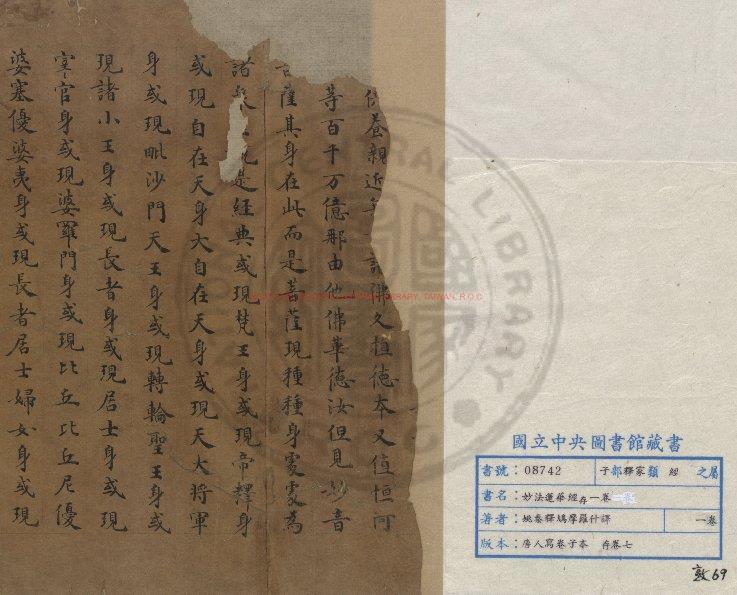 供養親近無諸佛久植德本又值恒河
等百千万億那由他佛華德汝但見妙音
菩薩其身在此而是菩薩現種種身處處為
諸衆生說是經典或現梵王身或現帝釋身
或現自在天身大自在天身或現天大將軍
身或現毗沙門天王身或現轉輪聖王身或
現諸小王身或現長者身或現居士身或現
宰官身或現婆羅門身或現比丘比丘尼優
婆塞優婆夷身或現長者居士婦女身或現
CENTRAL LIBRARY
LIBRARY, TAIWAN, R.O.C
國立中央圖書館藏書
書號:08742 子部釋家類 經 之屬
書名:妙法蓮華經存一卷
著者:姚秦釋鳩摩羅什譯 一卷
版本:唐人寫卷子本 存卷七
敦69